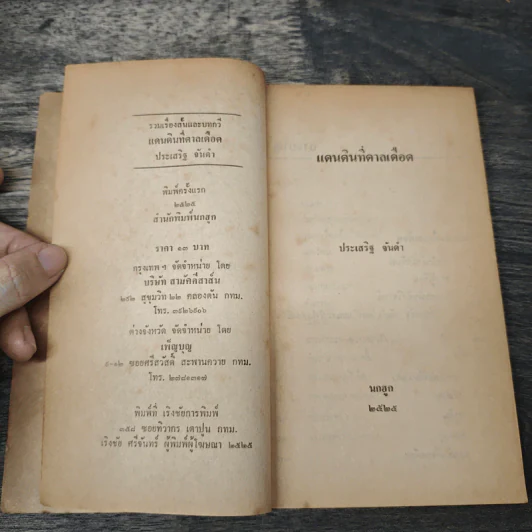 รวมเรื่องสั้นและบทกวี
แดนดินที่ดาลเดือด
ประเสริฐ จันดำ
พิมพ์ครั้งแรก
๒๕๒๕
สำนักพิมพ์นกฮูก
ราคา ๑๓ บาท
กรุงเทพ ฯ จัดจำหน่าย โดย
บริษัท สามัคคีสาส์น
๒๙๒ สุขุมวิท ๒๒ คลองตัน กทม.
โทร. ๓๙๒๖๙๐๖
ต่างจังหวัด จัดจำหน่าย โดย
เพ็ญบุญ
๕-๑๒ ซอยศรีสวัสดิ์ สะพานควาย กทม.
โทร. ๒๗๘๑๓๑๗
พิมพ์ที่ เริงชัยการพิมพ์
๓๕๘ ซอยทิวากร เตาปูน กทม.
เริงชัย ศรีจันทร์ ผู้พิมพ์ผู้โฆษณา ๒๕๒๕
แดนดินที่ดาลเดือด
ประเสริฐ จันดำ
นกฮูก
๒๕๒๕